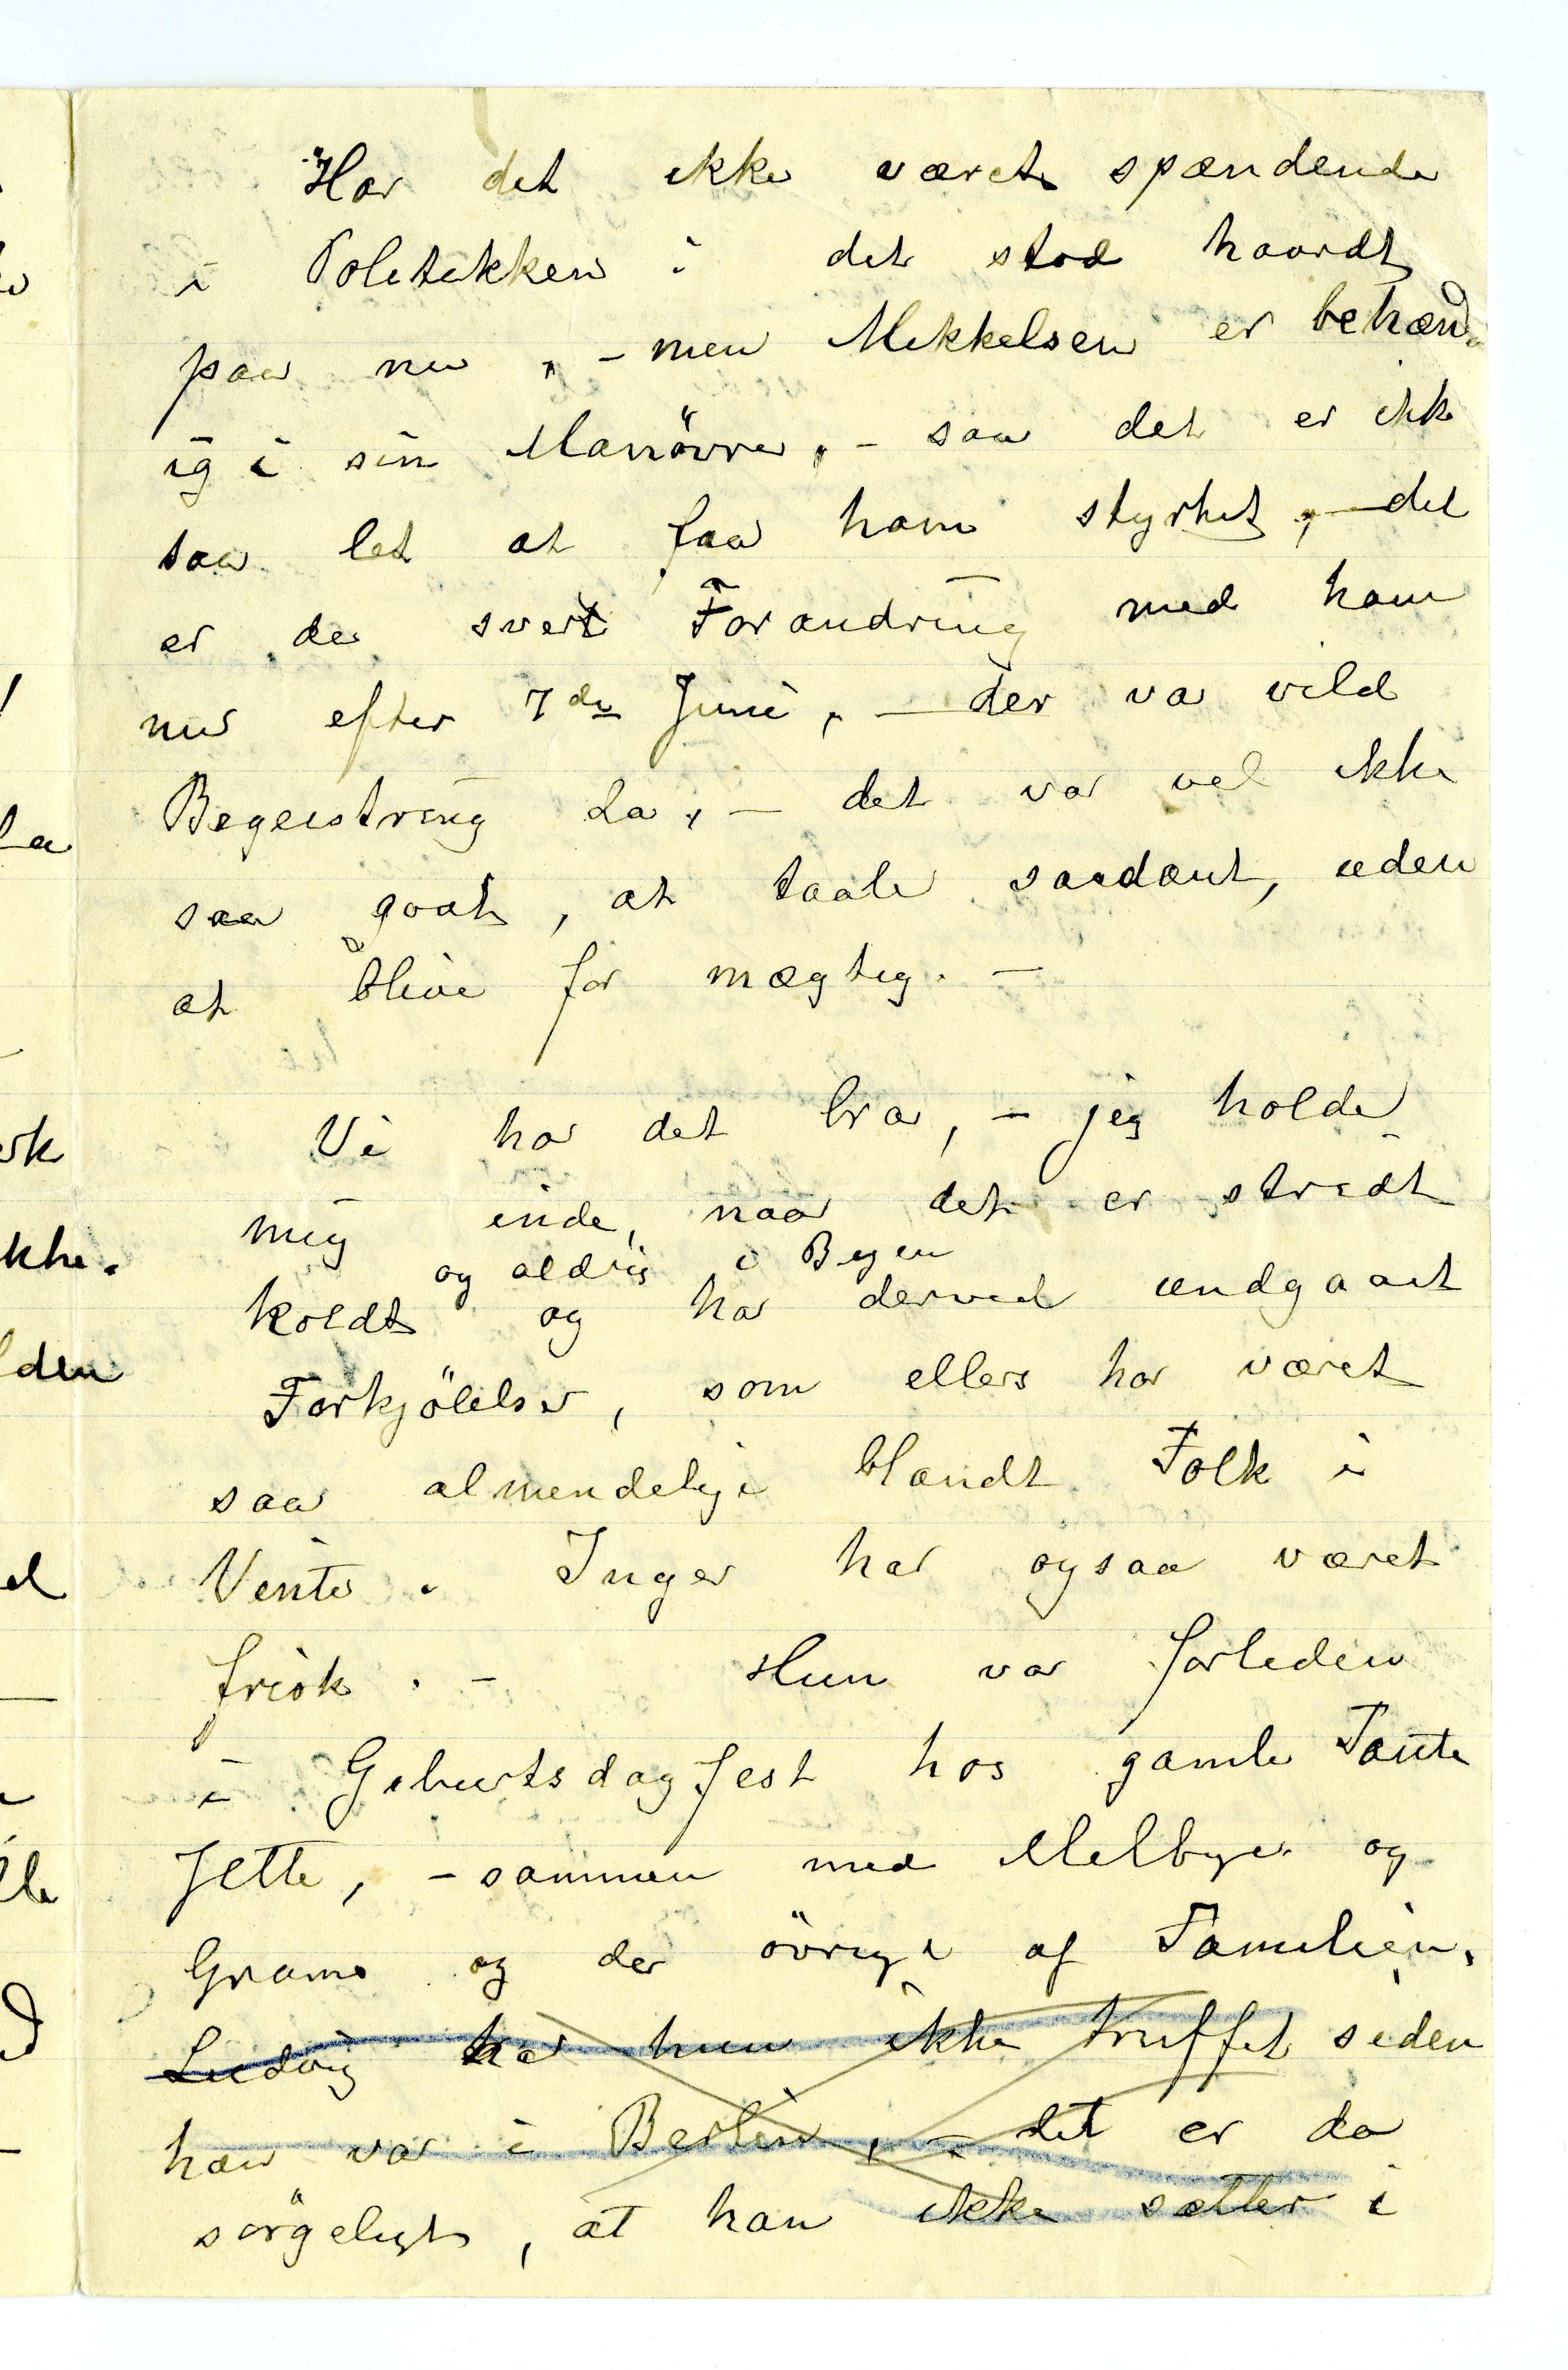 Har det ikke været spændende
i Politikken i det stod haardt
paa nu, – men Mikkelsen er behænd
ig i sin Manövre, – saa det er ikk
saa let at faa ham styrtet, – det
er da svert Forandring med ham
nu efter 7de Juni, – der va vild
Begeistring da, – det var vel ikke
saa godt, at taale saadant, uden
at blive for mægtig. –
Vi ha det bra, – jeg holde
mig inde, naar det er stridt
og aldrig i Byen
koldt og har derved undgaaet
Forkjölelser, som ellers har været
saa almendelige blandt Folk i
Vinte. Inger har ogsaa været
frisk. – Hun var forleden
i Geburtsdagfest hos gamle Tante
Jette, – sammen med Melbye og
Grams og de övrige af Familien.
Ludvig har hun ikke truffet siden
han var i Berlin, – det er da
sörgeligt, at han ikke sætter i